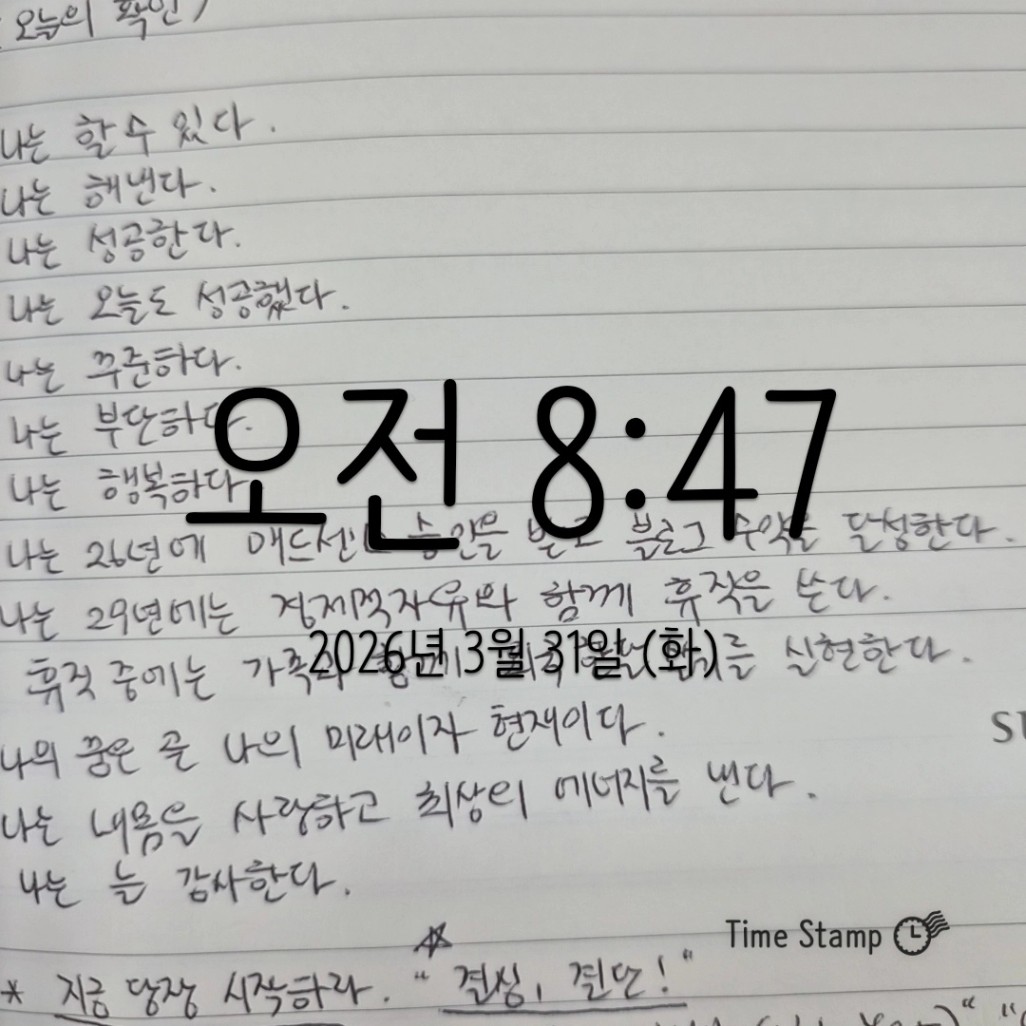 오늘의 확언)
나는 할 수 있다.
나는 해낸다.
나는 성공한다.
나는 오늘도 성공했다.
나는 꾸준하다.
나는 부단하다.
나는 행복하다
오전 8:47
나는 26년에 애드센스 승인을 받고 블로그 수익을 달성한다.
나는 29년에는 경제적자유와 함께 휴직을 쓴다.
휴직 중에는 가족과 를 실현한다.
2026년 3월 31일 (화)
나의 꿈은 곧 나의 미래이자 현재이다.
나는 내몸을 사랑하고 최상의 에너지를 낸다.
나는 늘 감사한다.
Time Stamp
* 지금 당장 시작하라. "결심, 결단!"